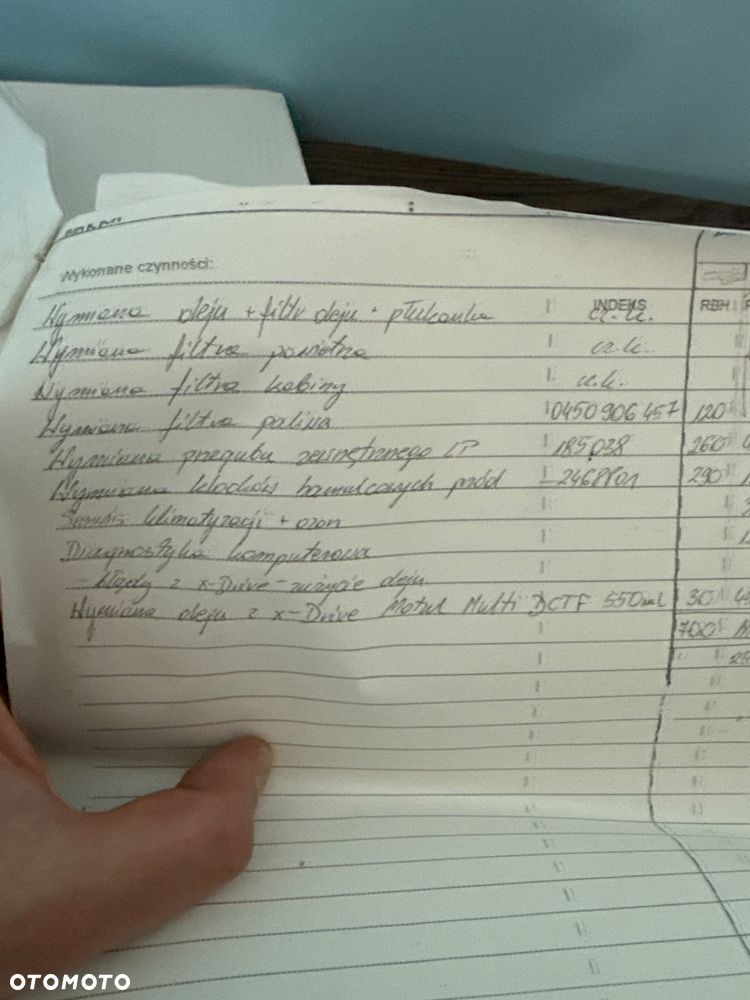 Wykonane czynności:
INDEKS RBH
Wymiana oleju + filtr oleju + płukanka cz.k.
Wymiana filtra powietrza cz.k.
Wymiana filtra kabiny cz.k.
Wymiana filtra paliwa 0450906457 120
Wymiana przegubu zewnętrznego LP 185038 260
Wymiana klocków hamulcowych przód 2468801 290
Serwis klimatyzacji + ozon
Diagnostyka komputerowa
- błędy z x-Drive - zużycie oleju
Wymiana oleju z x-Drive Motul Multi DCTF 550ml 30
700
OTOMOTO